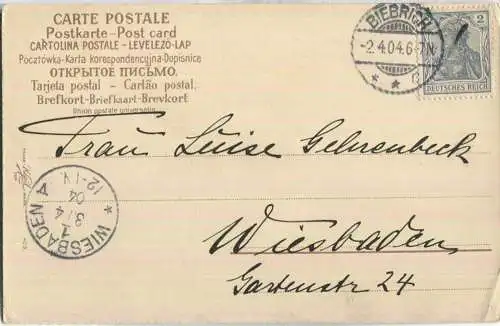 CARTE POSTALE
Postkarte-Post card
CARTOLINA POSTALE - LEVELEZŐ-LAP
Pocztówka-Karta korespondencyjna-Dopisnice
ОТКРЫТОЕ ПИСЬМО.
Tarjeta postal - Cartão postal.
Brefkort-Briefkaart-Brevkort
Union postale universelle
BIEBRICH
-2.4.04.6-7N.
2
DEUTSCHES REICH
Frau Luise Gehrenbeck
Wiesbaden
Gartenstr 24
* WIESBADEN *
1
3/4
04